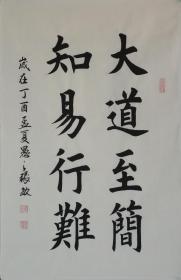 大道至簡
知易行難
歲在丁酉孟夏